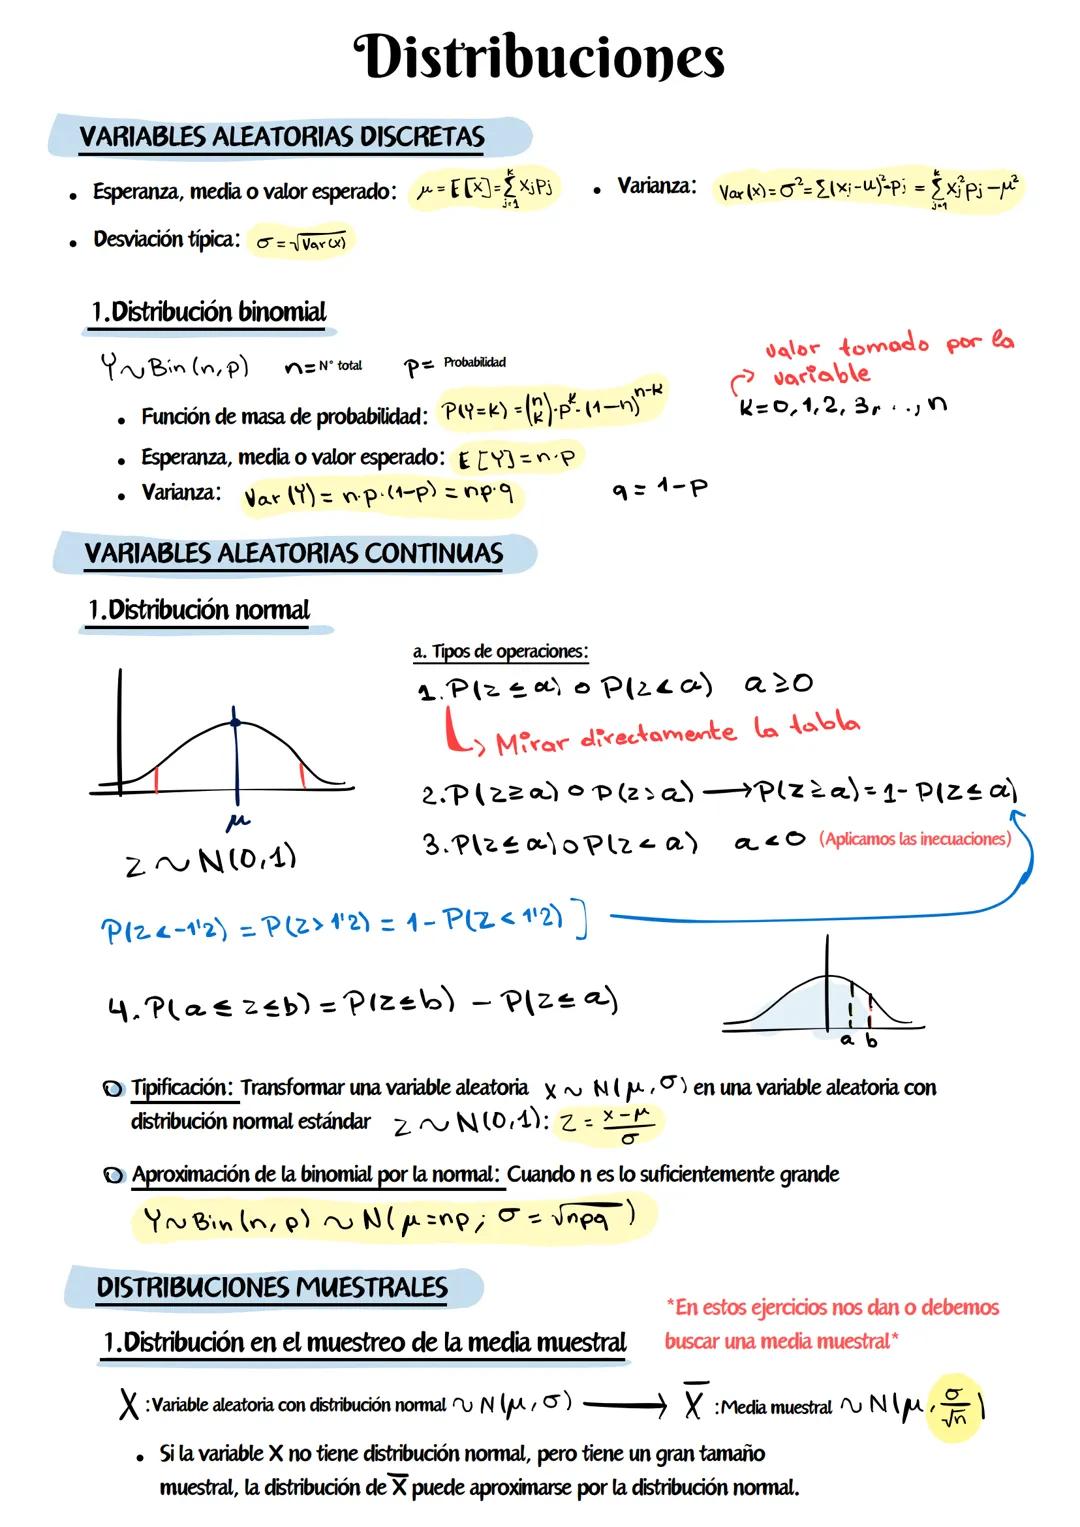 Distribuciones
VARIABLES ALEATORIAS DISCRETAS
• Esperanza, media o valor esperado: μ = E[X] = Σ_{j=1}^{k} xjPj • Varianza: Var(x) = σ² = Σ(xi-μ)²·Pi = Σ_{j=1}^{k} xj²Pj - μ²
• Desviación típica: σ = √Var(x)
1.Distribución binomial
Y ~ Bin(n,p) n= N° total p= Probabilidad
valor tomado por la
variable
k=0,1,2,3,...,n
• Función de masa de probabilidad: P(Y=k) = (n k)·p^k·(1-n)^{n-k}
• Esperanza, media o valor esperado: E[Y] = n·p
• Varianza: Var(Y) = n·p·(1-p) = np·q q = 1-p
VARIABLES ALEATORIAS CONTINUAS
1.Distribución normal
a. Tipos de operaciones:
1. P(z ≤ a) o P(z < a) a ≥ 0
Mirar directamente la tabla
2. P(z ≥ a) o P(z > a) → P(z ≥ a) = 1 - P(z ≤ a)
μ
3. P(z ≤ a) o P(z < a) a < 0 (Aplicamos las inecuaciones)
z ~ N(0,1)
P(z < -1'2) = P(z > 1'2) = 1 - P(z < 1'2) ]
4. P(a ≤ z ≤ b) = P(z ≤ b) - P(z ≤ a)
a b
Tipificación: Transformar una variable aleatoria x ~ N(μ,σ) en una variable aleatoria con
distribución normal estándar z ~ N(0,1): z = (x-μ)/σ
Aproximación de la binomial por la normal: Cuando n es lo suficientemente grande
Y ~ Bin(n,p) ~ N(μ=np; σ = √npq)
DISTRIBUCIONES MUESTRALES
*En estos ejercicios nos dan o debemos
buscar una media muestral*
1.Distribución en el muestreo de la media muestral
X :Variable aleatoria con distribución normal ~ N(μ,σ) → X̄ :Media muestral ~ N(μ, σ/√n)
• Si la variable X no tiene distribución normal, pero tiene un gran tamaño
muestral, la distribución de X̄ puede aproximarse por la distribución normal.